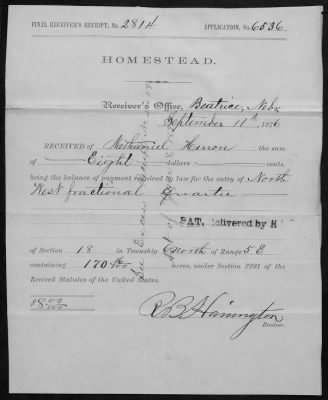 FINAL RECEIVER'S RECEIPT, No. 2814 APPLICATION, No. 6536
HOMESTEAD.
Receiver's Office, Beatrice, Neb
September 11th 1876
RECEIVED of Nathaniel Herron the sum
of Eight dollars cents,
being the balance of payment required by law for the entry of North
West fractional Quarter
PAT. delivered by R
of Section 18 in Township 6 North of Range 5 E
containing 170 acres, under Section 2291 of the
Revised Statutes of the United States.
$8
R B Harrington
Receiver.